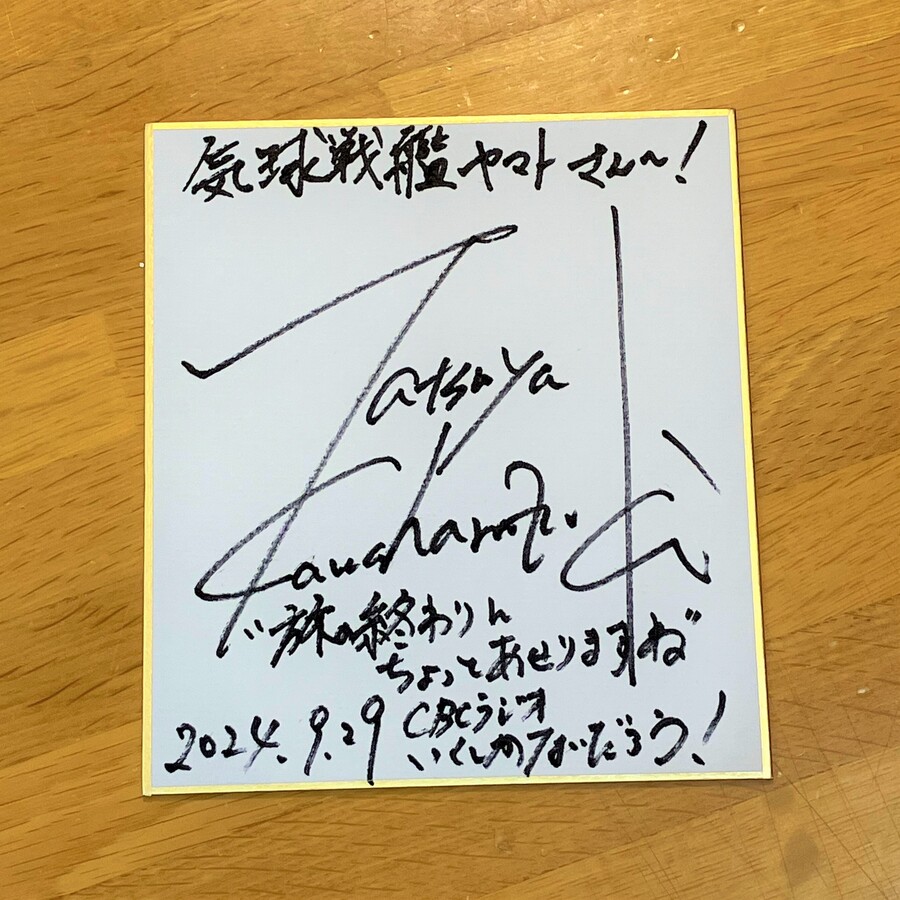 気球戦艦ヤマトさん〜!
Tatsuya
Kawahara
"旅の終わりに
ちょっとあせりますね"
2024.9.29 CBCラジオ
いくしかないだろう!